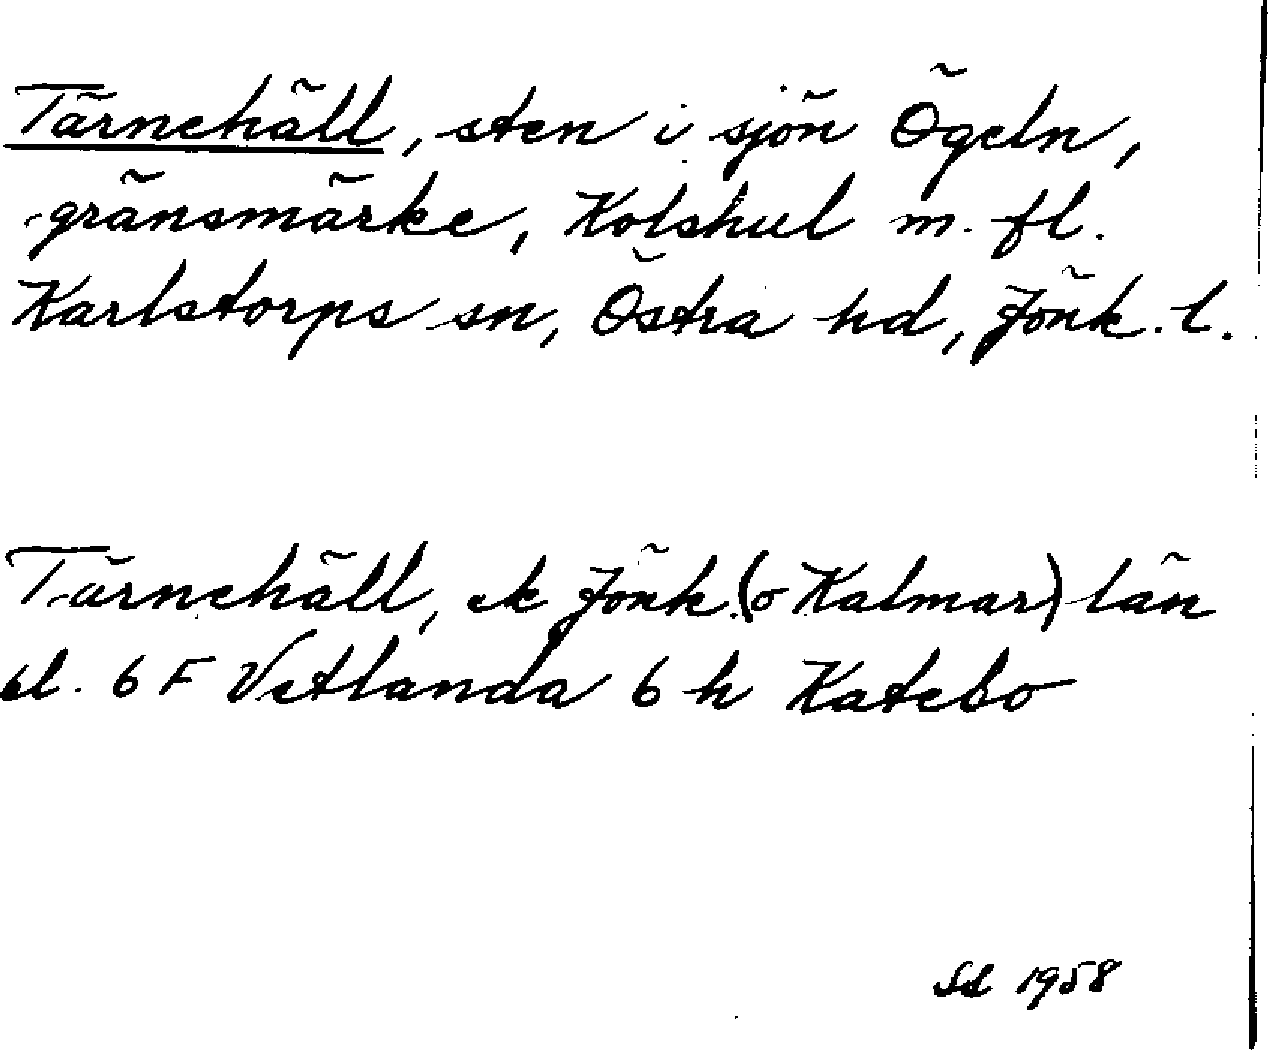 Tärnehäll, sten i sjön Ögeln,
gränsmärke, Kolshul m. fl.
Karlstorps sn, Östra hd, Jönk. l.
Tärnehäll, ek Jönk. (o Kalmar) län
bl. 6 F Vetlanda 6 h Katebo
1958